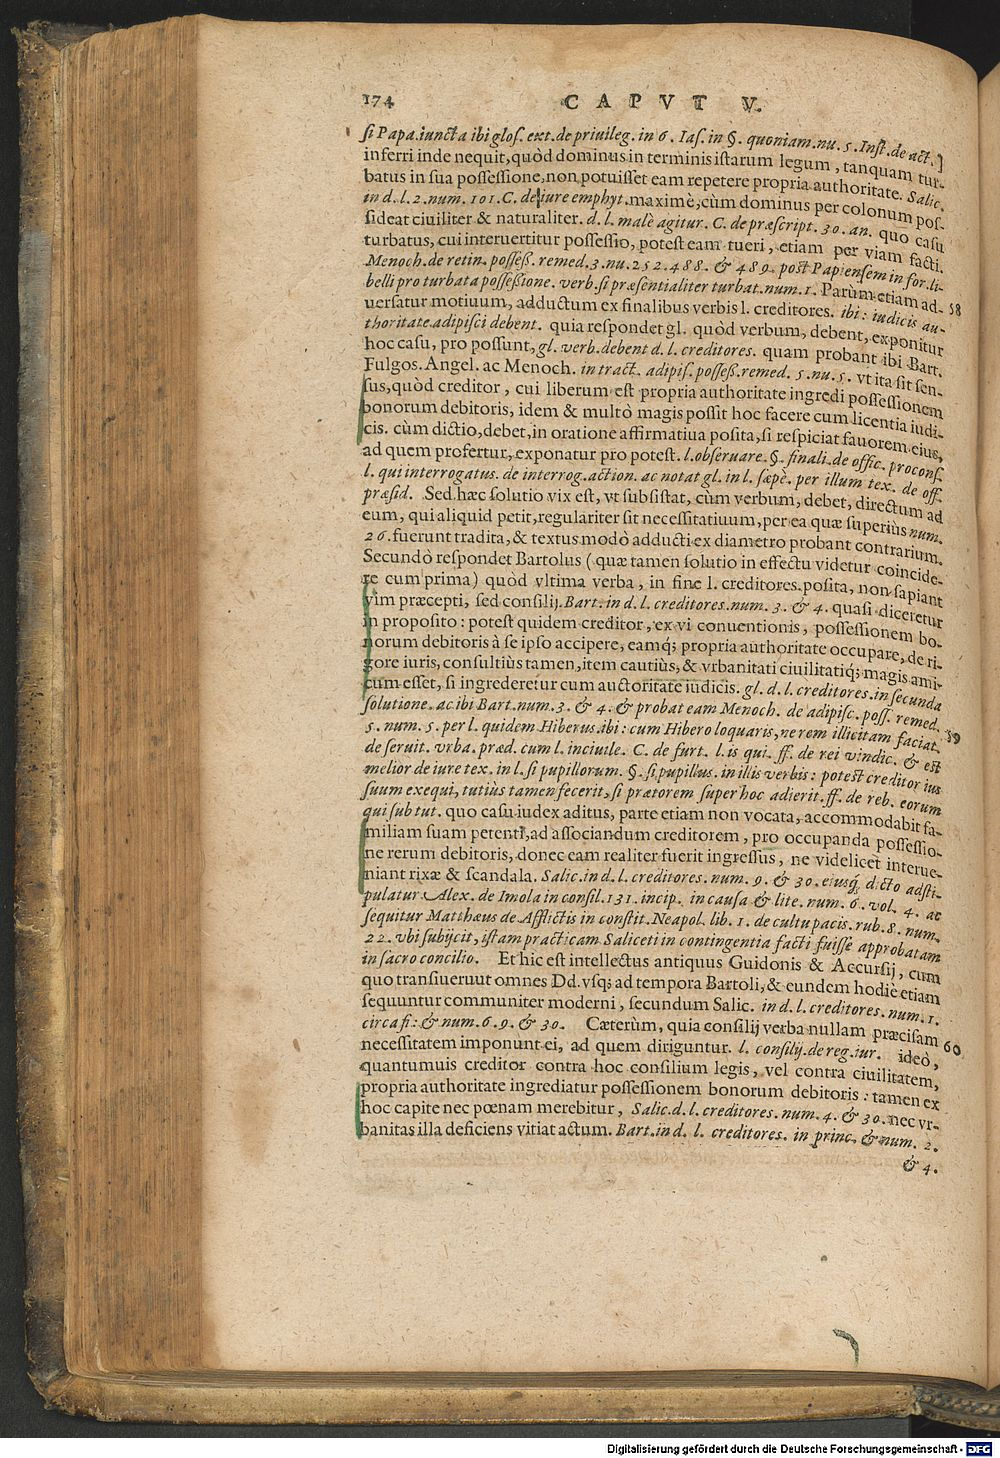 174 CAPVT V.
si Papa. iuncta ibi glos. ext. de priuileg. in 6. Ias. in §. quoniam. nu. 5. Inst. de act.]
inferri inde nequit, quòd dominus in terminis istarum legum, tanquam tur-
batus in sua possessione, non potuisset eam repetere propria authoritate. Salic.
in d. l. 2. num. 101. C. de iure emphyt. maximè, cùm dominus per colonum pos-
sideat ciuiliter & naturaliter. d. l. malè agitur. C. de præscript. 30. an. quo casu
turbatus, cui interuertitur possessio, potest eam tueri, etiam per viam facti.
Menoch. de retin. posseß. remed. 3. nu. 252. 488. & 489. post Papiensem in for. li-
belli pro turbata poßeßione. verb. si præsentialiter turbat. num. 1. Parùm etiam ad- 58
uersatur motiuum, adductum ex finalibus verbis l. creditores. ibi: iudicis au-
thoritate adipisci debent. quia respondet gl. quòd verbum, debent, exponitur
hoc casu, pro possunt, gl. verb. debent d. l. creditores. quam probant ibi Bart.
Fulgos. Angel. ac Menoch. in tract. adipis. posseß. remed. 5. nu. 5. vt ita sit sen-
sus, quòd creditor, cui liberum est propria authoritate ingredi possessionem
bonorum debitoris, idem & multò magis possit hoc facere cum licentia iudi-
cis. cùm dictio, debet, in oratione affirmatiua posita, si respiciat fauorem eius,
ad quem profertur, exponatur pro potest. l. obseruare. §. finali. de offic. procons.
l. qui interrogatus. de interrog. action. ac notat gl. in l. sæpè. per illum tex. de off.
præsid. Sed hæc solutio vix est, vt subsistat, cùm verbum, debet, directum ad
eum, qui aliquid petit, regulariter sit necessitatiuum, per ea quæ superiùs num.
26. fuerunt tradita, & textus modò adducti ex diametro probant contrarium.
Secundò respondet Bartolus (quæ tamen solutio in effectu videtur coincide-
re cum prima) quòd vltima verba, in fine l. creditores. posita, non sapiant
vim præcepti, sed consilij. Bart. in d. l. creditores. num. 3. & 4. quasi diceretur
in proposito: potest quidem creditor, ex vi conuentionis, possessionem bo-
norum debitoris à se ipso accipere, eamq́; propria authoritate occupare, de ri-
gore iuris, consultiùs tamen, item cautiùs, & vrbanitati ciuilitatiq́; magis ami-
cum esset, si ingrederetur cum auctoritate iudicis. gl. d. l. creditores. in secunda
solutione. ac ibi Bart. num. 3. & 4. & probat eam Menoch. de adipisc. poss. remed.
5. num. 5. per l. quidem Hiberus. ibi: cum Hibero loquaris, ne rem illicitam faciat. 59
de seruit. vrba. præd. cum l. inciuile. C. de furt. l. is qui. ff. de rei vindic. & est
melior de iure tex. in l. si pupillorum. §. si pupillus. in illis verbis: potest creditor ius
suum exequi, tutius tamen fecerit, si prætorem super hoc adierit. ff. de reb. eorum
qui sub tut. quo casu iudex aditus, parte etiam non vocata, accommodabit fa-
miliam suam petenti, ad associandum creditorem, pro occupanda possessio-
ne rerum debitoris, donec eam realiter fuerit ingressus, ne videlicet interue-
niant rixæ & scandala. Salic. in d. l. creditores. num. 9. & 30. eiusq́ dicto adsti-
pulatur Alex. de Imola in consil. 131. incip. in causa & lite. num. 6. vol. 4. ac
sequitur Matthæus de Afflictis in constit. Neapol. lib. 1. de cultu pacis. rub. 8. num.
22. vbi subijcit, istam practicam Saliceti in contingentia facti fuisse approbatam
in sacro concilio. Et hic est intellectus antiquus Guidonis & Accursij, cum
quo transiuerunt omnes Dd. vsq; ad tempora Bartoli, & eundem hodiè etiam
sequuntur communiter moderni, secundum Salic. in d. l. creditores. num. 1.
circa fi: & num. 6. 9. & 30. Cæterùm, quia consilij verba nullam præcisam 60
necessitatem imponunt ei, ad quem diriguntur. l. consilij. de reg. iur. ideò,
quantumuis creditor contra hoc consilium legis, vel contra ciuilitatem,
propria authoritate ingrediatur possessionem bonorum debitoris: tamen ex
hoc capite nec pœnam merebitur, Salic. d. l. creditores. num. 4. & 30. nec vr-
banitas illa deficiens vitiat actum. Bart. in d. l. creditores. in princ. & num. 2.
& 4.
Digitalisierung gefördert durch die Deutsche Forschungsgemeinschaft - DFG